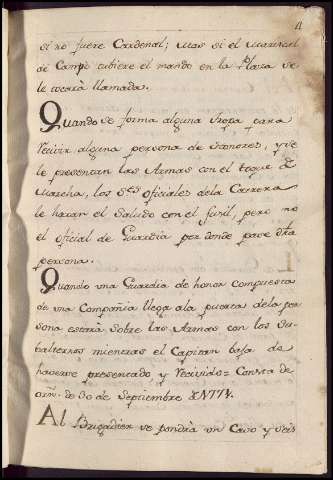 11
si no fuere Cardenal; mas si el Mariscal
de Campo tubiere el mando en la Plaza se
le tocará llamada.
Quando se forma alguna tropa para
recivir alguna persona de honores, y se
le presentan las Armas con el toque de
Marcha, los S.es oficiales de la Carrera
le haran el Saludo con el fusil, pero no
el oficial de Guardia por donde pase dha
persona.
Quando una Guardia de honor compuesta
de una Compañia llega a la puerta de la per
sona estará sobre las Armas con los Su-
balternos mientras el Capitan baja de
haverse presentado, y recivido = Consta de
orn. de 30 de Septiembre de 1774.
Al Brigadier se pondrá un Cavo y seis